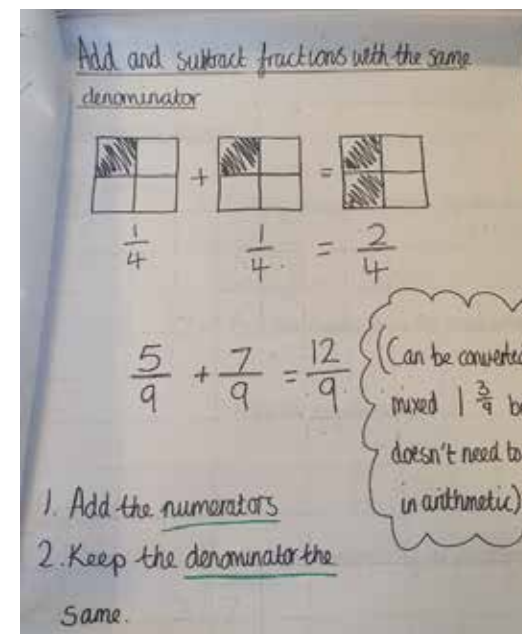 Add and subtract fractions with the same
denominator
+ =
1/4 1/4 = 2/4
5/9 + 7/9 = 12/9
(Can be converted
mixed 1 3/9
doesn't need to
in arithmetic)
1. Add the numerators
2. Keep the denominator the
same.